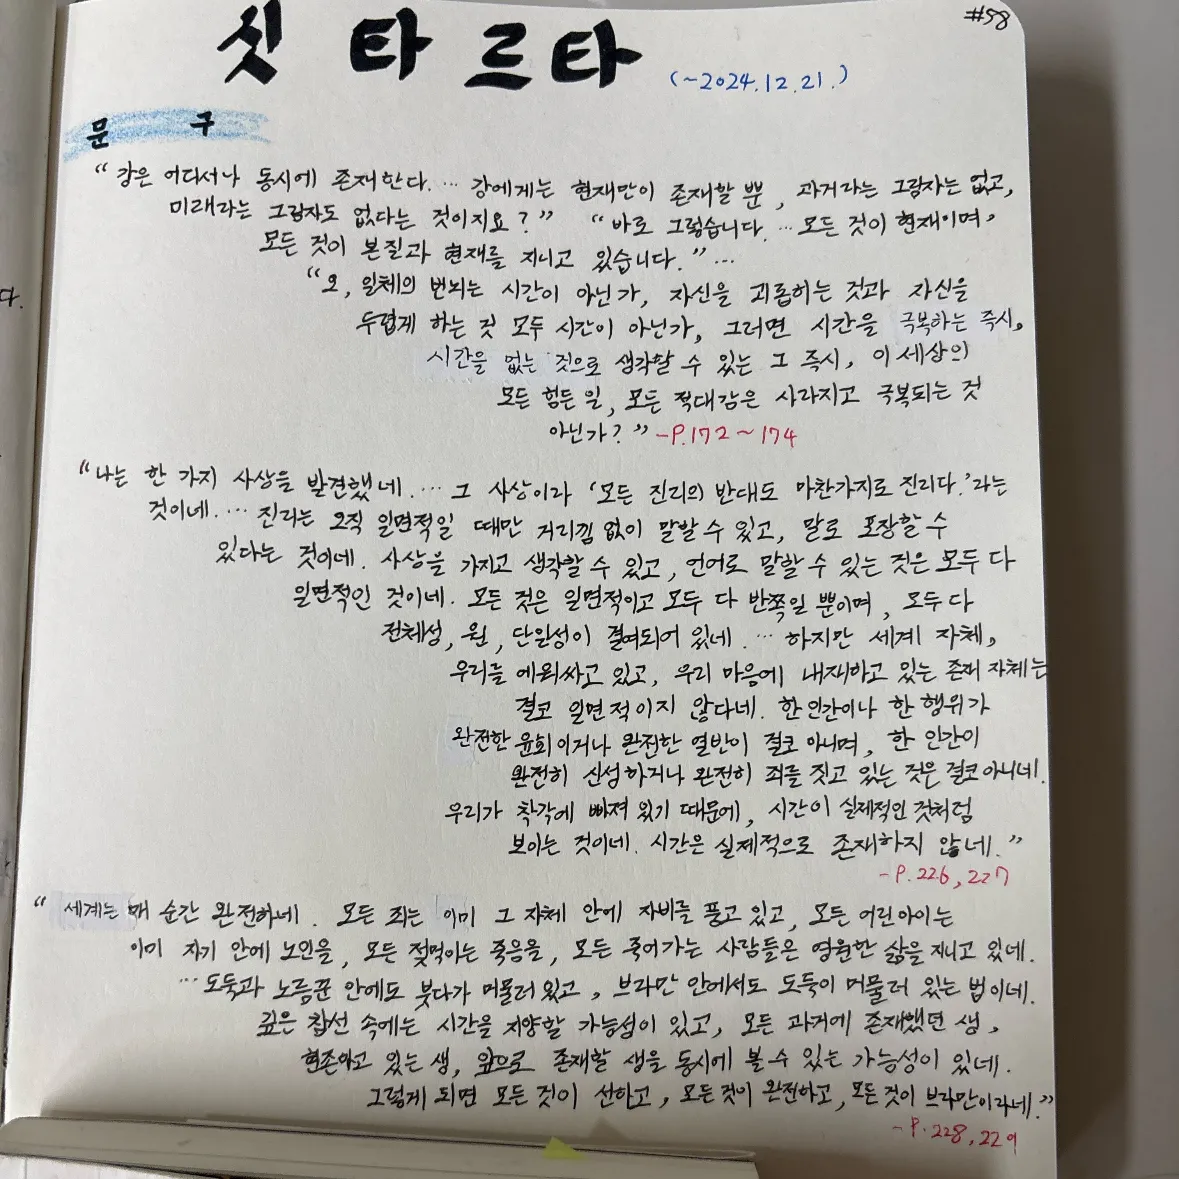 #58
싯타르타 (~2024.12.21.)
문구
"강은 어디서나 동시에 존재한다. … 강에게는 현재만이 존재할 뿐, 과거라는 그림자는 없고,
미래라는 그림자도 없다는 것이지요?" "바로 그렇습니다. … 모든 것이 현재이며,
모든 것이 본질과 현재를 지니고 있습니다." …
"오, 일체의 번뇌는 시간이 아닌가, 자신을 괴롭히는 것과 자신을
두렵게 하는 것 모두 시간이 아닌가, 그러면 시간을 극복하는 즉시,
시간을 없는 것으로 생각할 수 있는 그 즉시, 이 세상의
모든 힘든 일, 모든 적대감은 사라지고 극복되는 것
아닌가?" -P.172~174
"나는 한 가지 사상을 발견했네. … 그 사상이라 '모든 진리의 반대도 마찬가지로 진리다.'라는
것이네. … 진리는 오직 일면적일 때만 거리낌 없이 말할 수 있고, 말로 포장할 수
있다는 것이네. 사상을 가지고 생각할 수 있고, 언어로 말할 수 있는 것은 모두 다
일면적인 것이네. 모든 것은 일면적이고 모두 다 반쪽일 뿐이며, 모두 다
전체성, 원, 단일성이 결여되어 있네. … 하지만 세계 자체,
우리를 에워싸고 있고, 우리 마음에 내재하고 있는 존재 자체는
결코 일면적이지 않다네. 한 인간이나 한 행위가
완전한 윤회이거나 완전한 열반이 결코 아니며, 한 인간이
완전히 신성하거나 완전히 죄를 짓고 있는 것은 결코 아니네.
우리가 착각에 빠져 있기 때문에, 시간이 실제적인 것처럼
보이는 것이네. 시간은 실제적으로 존재하지 않네."
-P.226,227
"세계는 매 순간 완전하네. 모든 죄는 이미 그 자체 안에 자비를 품고 있고, 모든 어린아이는
이미 자기 안에 노인을, 모든 젖먹이는 죽음을, 모든 죽어가는 사람들은 영원한 삶을 지니고 있네.
… 도둑과 노름꾼 안에도 붓다가 머물러 있고, 브라만 안에서도 도둑이 머물러 있는 법이네.
깊은 참선 속에는 시간을 지양할 가능성이 있고, 모든 과거에 존재했던 생,
현존하고 있는 생, 앞으로 존재할 생을 동시에 볼 수 있는 가능성이 있네.
그렇게 되면 모든 것이 선하고, 모든 것이 완전하고, 모든 것이 브라만이라네."
-P.228,229
다.